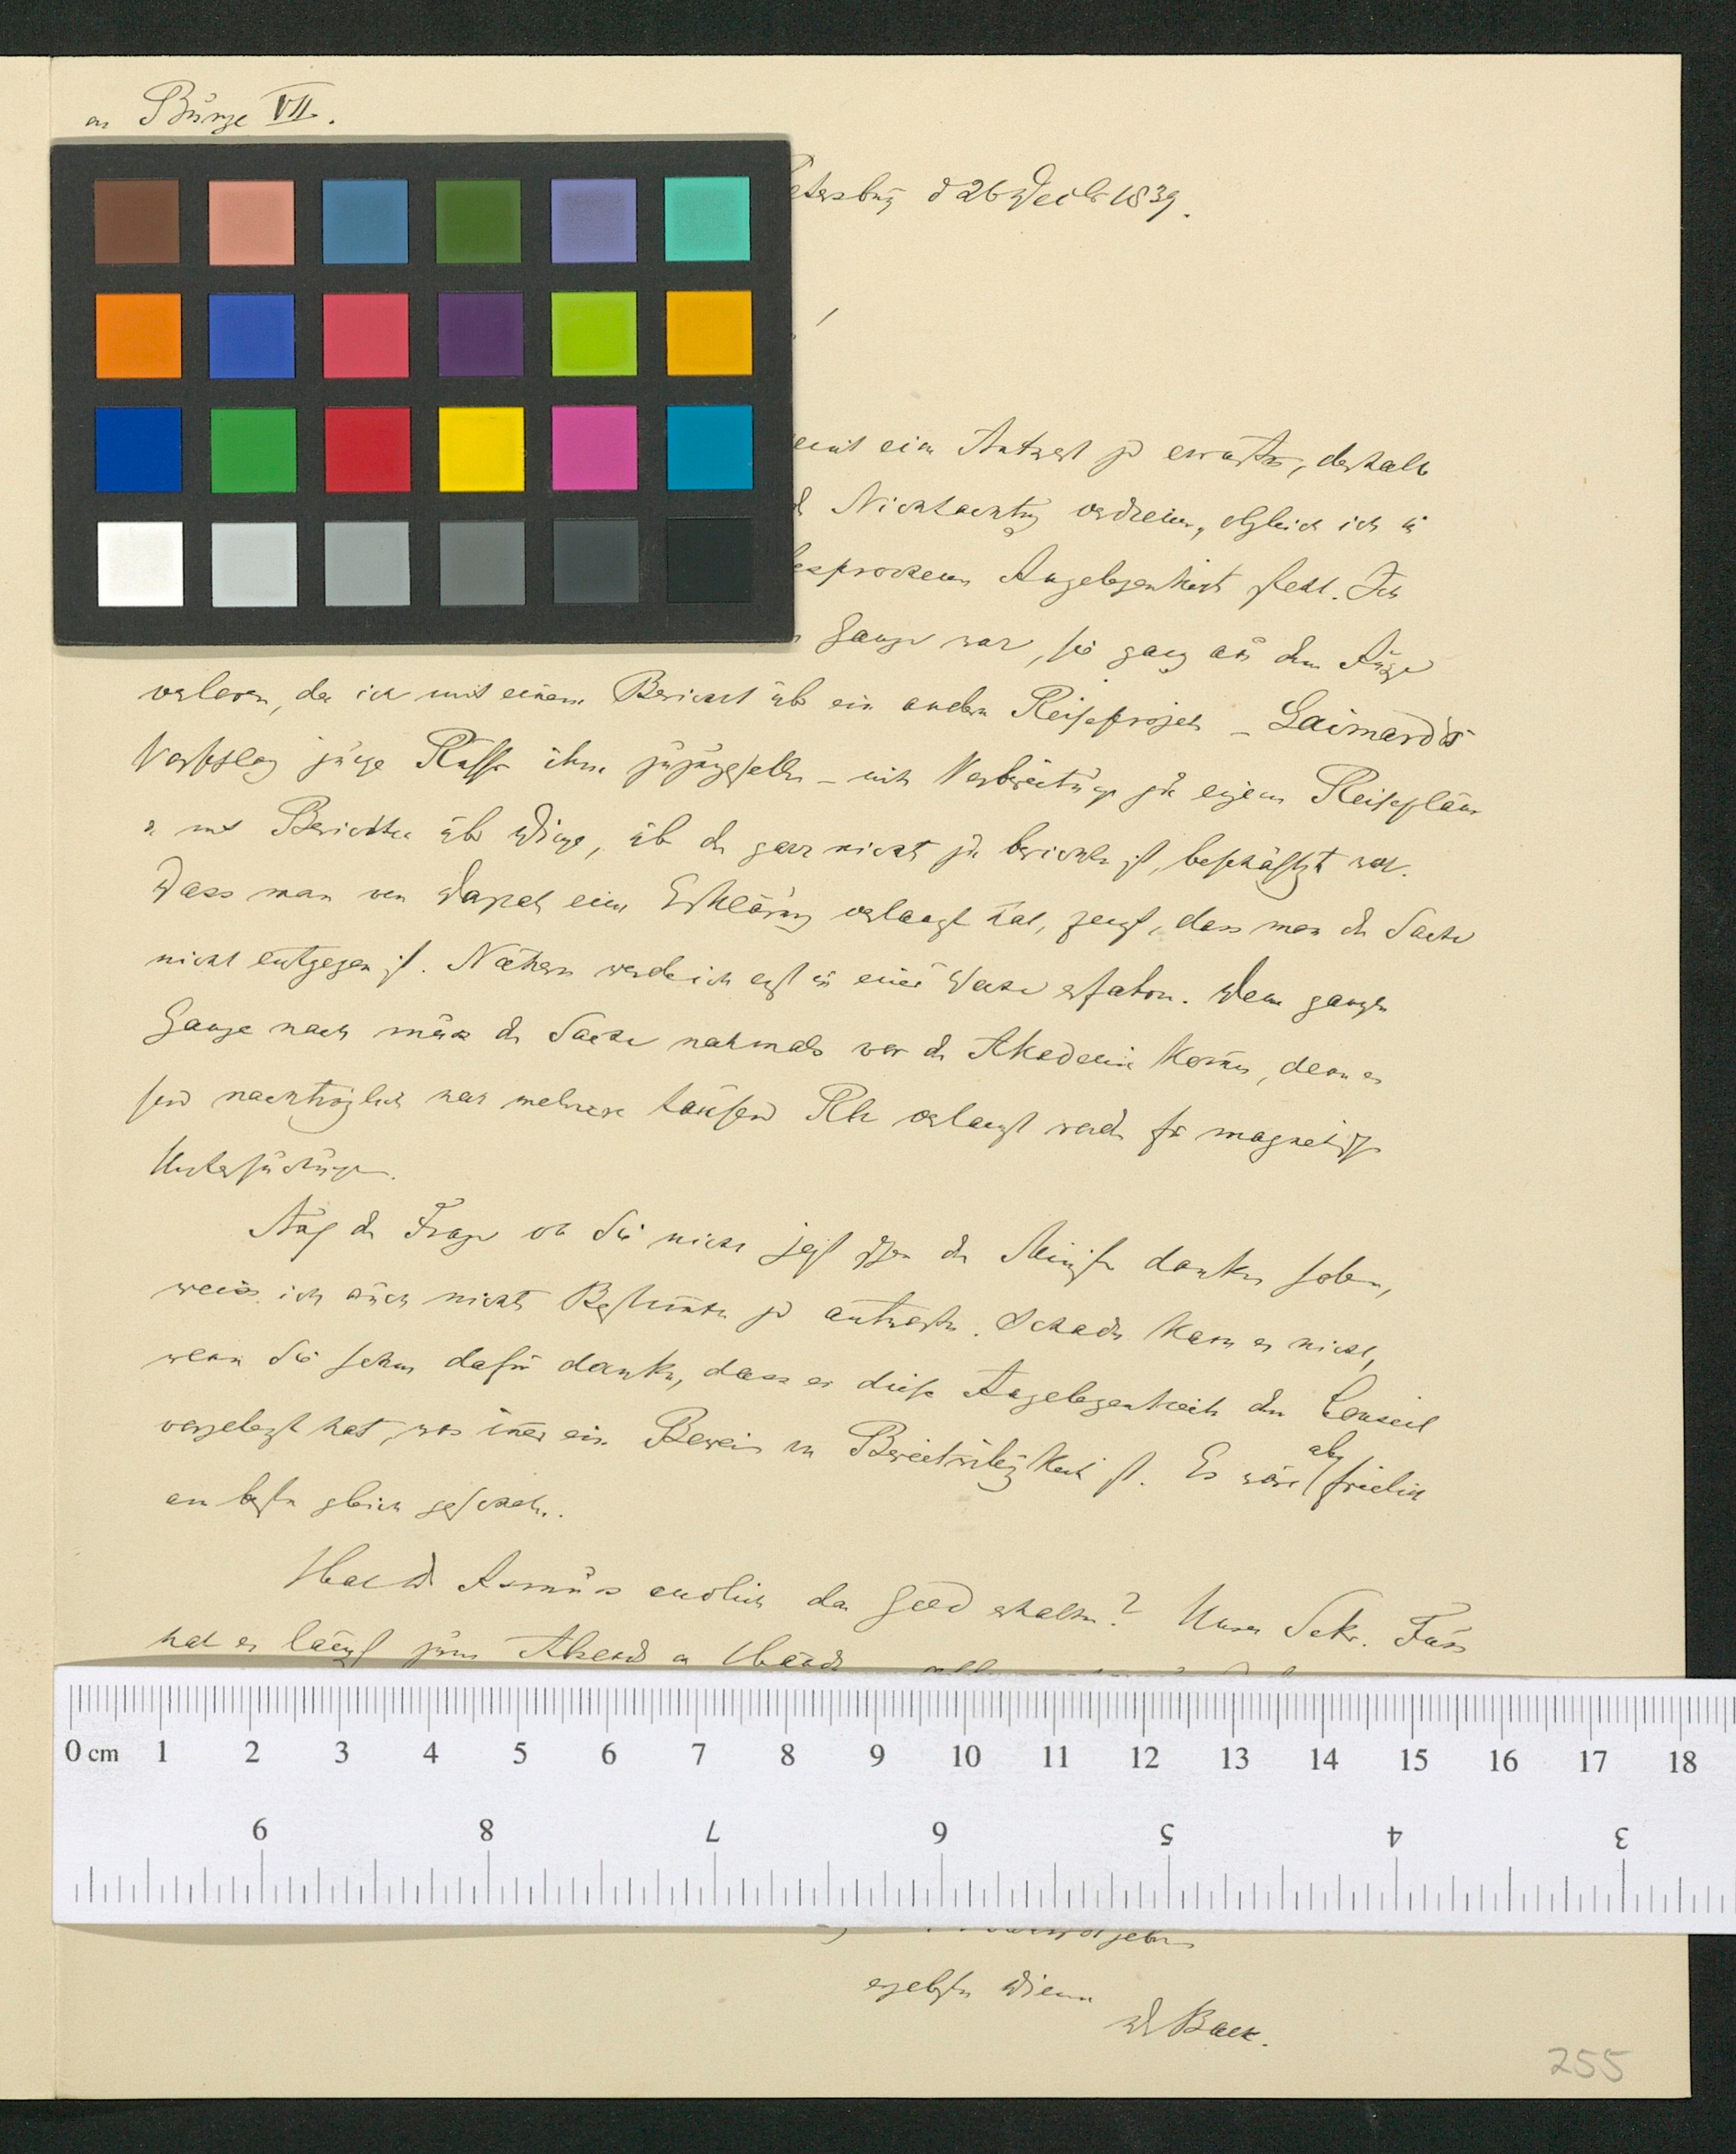 an Bunge VII.
Petersburg d 26 Decbr 1839.
!
eine Antwort zu erwarten, deshalb
Nichtachtung obgleich ich in
besprochenen Angelegenheit steht. Ich
Gange war, sie ganz aus dem Auge
verloren, da ich mit einem Bericht über ein andern Reiseproject – Gaimard's
Vorschlag junge Russen ihm zuzugesellen – mit Vorbereitungen zu eigenen Reiseplänen
u mit Berichten über Dinge, über die gar nichts zu berichten ist, beschäftigt war.
Dass man von eine Erklärung verlangt hat, zeigt, dass man der Sache
nicht entgegen ist. Näheres werde ich erst in einer Woche erfahren. Dem ganzen
Gange nach muss die Sache nochmals vor die Akademie kommen, denn es
sind nachträglich noch mehrere tausend Rbl verlangt worden für magnetische
Untersuchungen.
Auf die Frage ob Sie nicht jetzt schon dem Minister danken sollen,
weiss ich auch nichts Bestimmtes zu antworten. Schaden kann es nicht,
wenn Sie schon dafür danken, dass er diese Angelegenheit dem Conseil
vorgelegt hat, was immer ein Beweis von Bereitwilligkeit ist. Es wäre aber freilich
am besten gleich geschehen.
Hat Dr Asmuss endlich das Geld erhalten? Unser Sekr. Fuss
hat es längst zum
ergebenster Diener
Baer.
255
0 cm 1 2 3 4 5 6 7 8 9 10 11 12 13 14 15 16 17 18
9 8 7 6 5 4 3